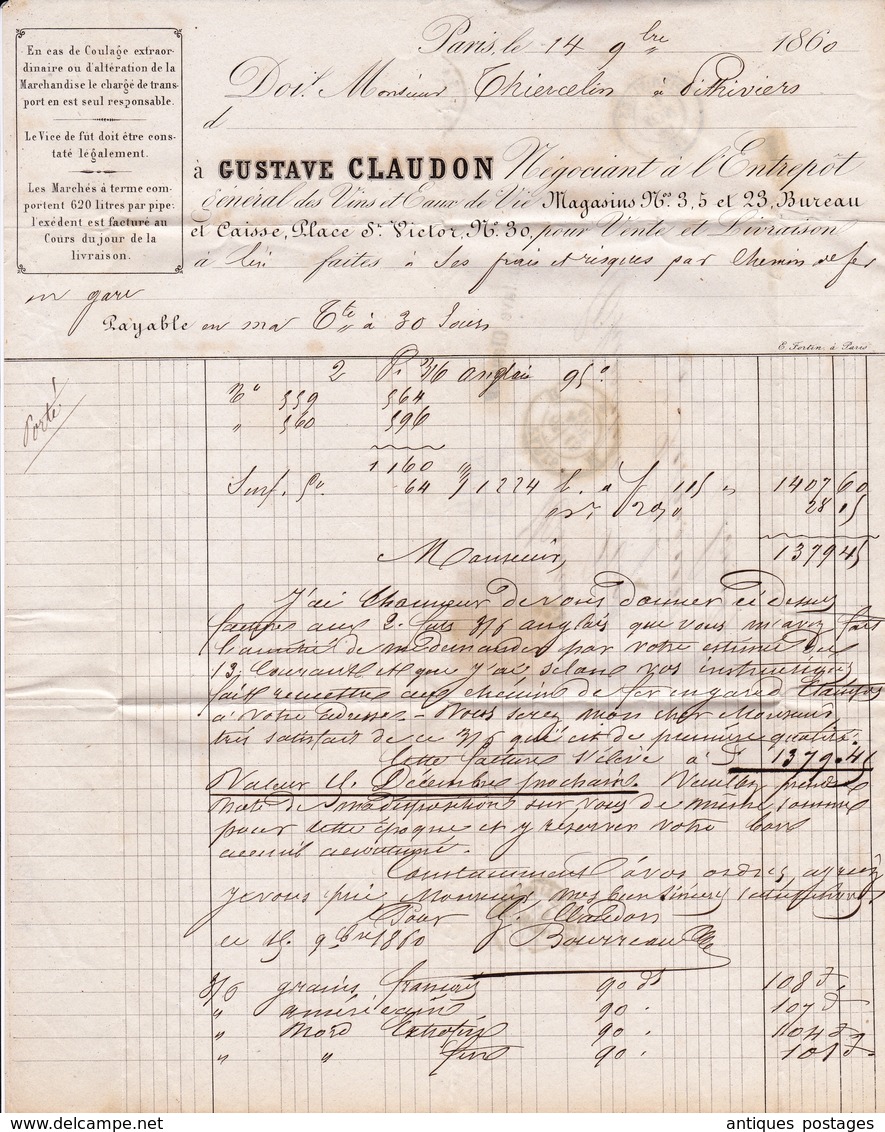 En cas de Coulage extraor-
dinaire ou d'altération de la
Marchandise le chargé de trans-
port en est seul responsable.
Le Vice de fût doit être cons-
taté légalement.
Les Marchés à terme com-
portent 620 litres par pipe:
l'exédent est facturé au
Cours du jour de la
livraison.
Paris, le 14 9bre 1860
Doit Monsieur Thiercelin à Pithiviers
d
à GUSTAVE CLAUDON Négociant à l'Entrepôt
Général des Vins et Eaux de Vie Magasins Nos. 3, 5 et 23, Bureau
et Caisse, Place St. Victor, No. 30, pour Vente et Livraison
à lui faites à ses frais et risques par Chemin de fer
en gare
Payable en ma Tte à 30 Jours
E. Fortin, à Paris
Porté
2 Ps 3/6 anglais 95°
No 559 564
" 560 596
1160 "
Surf. 5° 64 1224 l. à f 115 " 1407 60
28 15
1379 45
Monsieur,
J'ai l'honneur de vous donner ci dessus
facture aux 2. futs 3/6 anglais que vous m'avez fait
l'amitié de me demander par votre estimée du
13 Courant et que j'ai selon vos instructions
fait remettre au chemin de fer en gare d'Etampes
à votre adresse. - Vous serez mon cher Monsieur,
très satisfait de ce 3/6 qui est de première qualité.
Cette facture s'élève à F 1379.45
Valeur 15 Décembre prochain. Veuillez prendre
note de ma disposition sur vous de même somme
pour cette époque et y réserver votre bon
accueil accoutumé.
Constamment à vos ordres, agréez
je vous prie Monsieur mes bien sincères
Pour G. Claudon
ce 15 9bre 1860 Bourreau
3/6 grains français 90 ds 108 F
" américains 90 . 107 F
" Nord Extrafin 90 . 104 F
" " fin 90 . 101 F
antiques postages